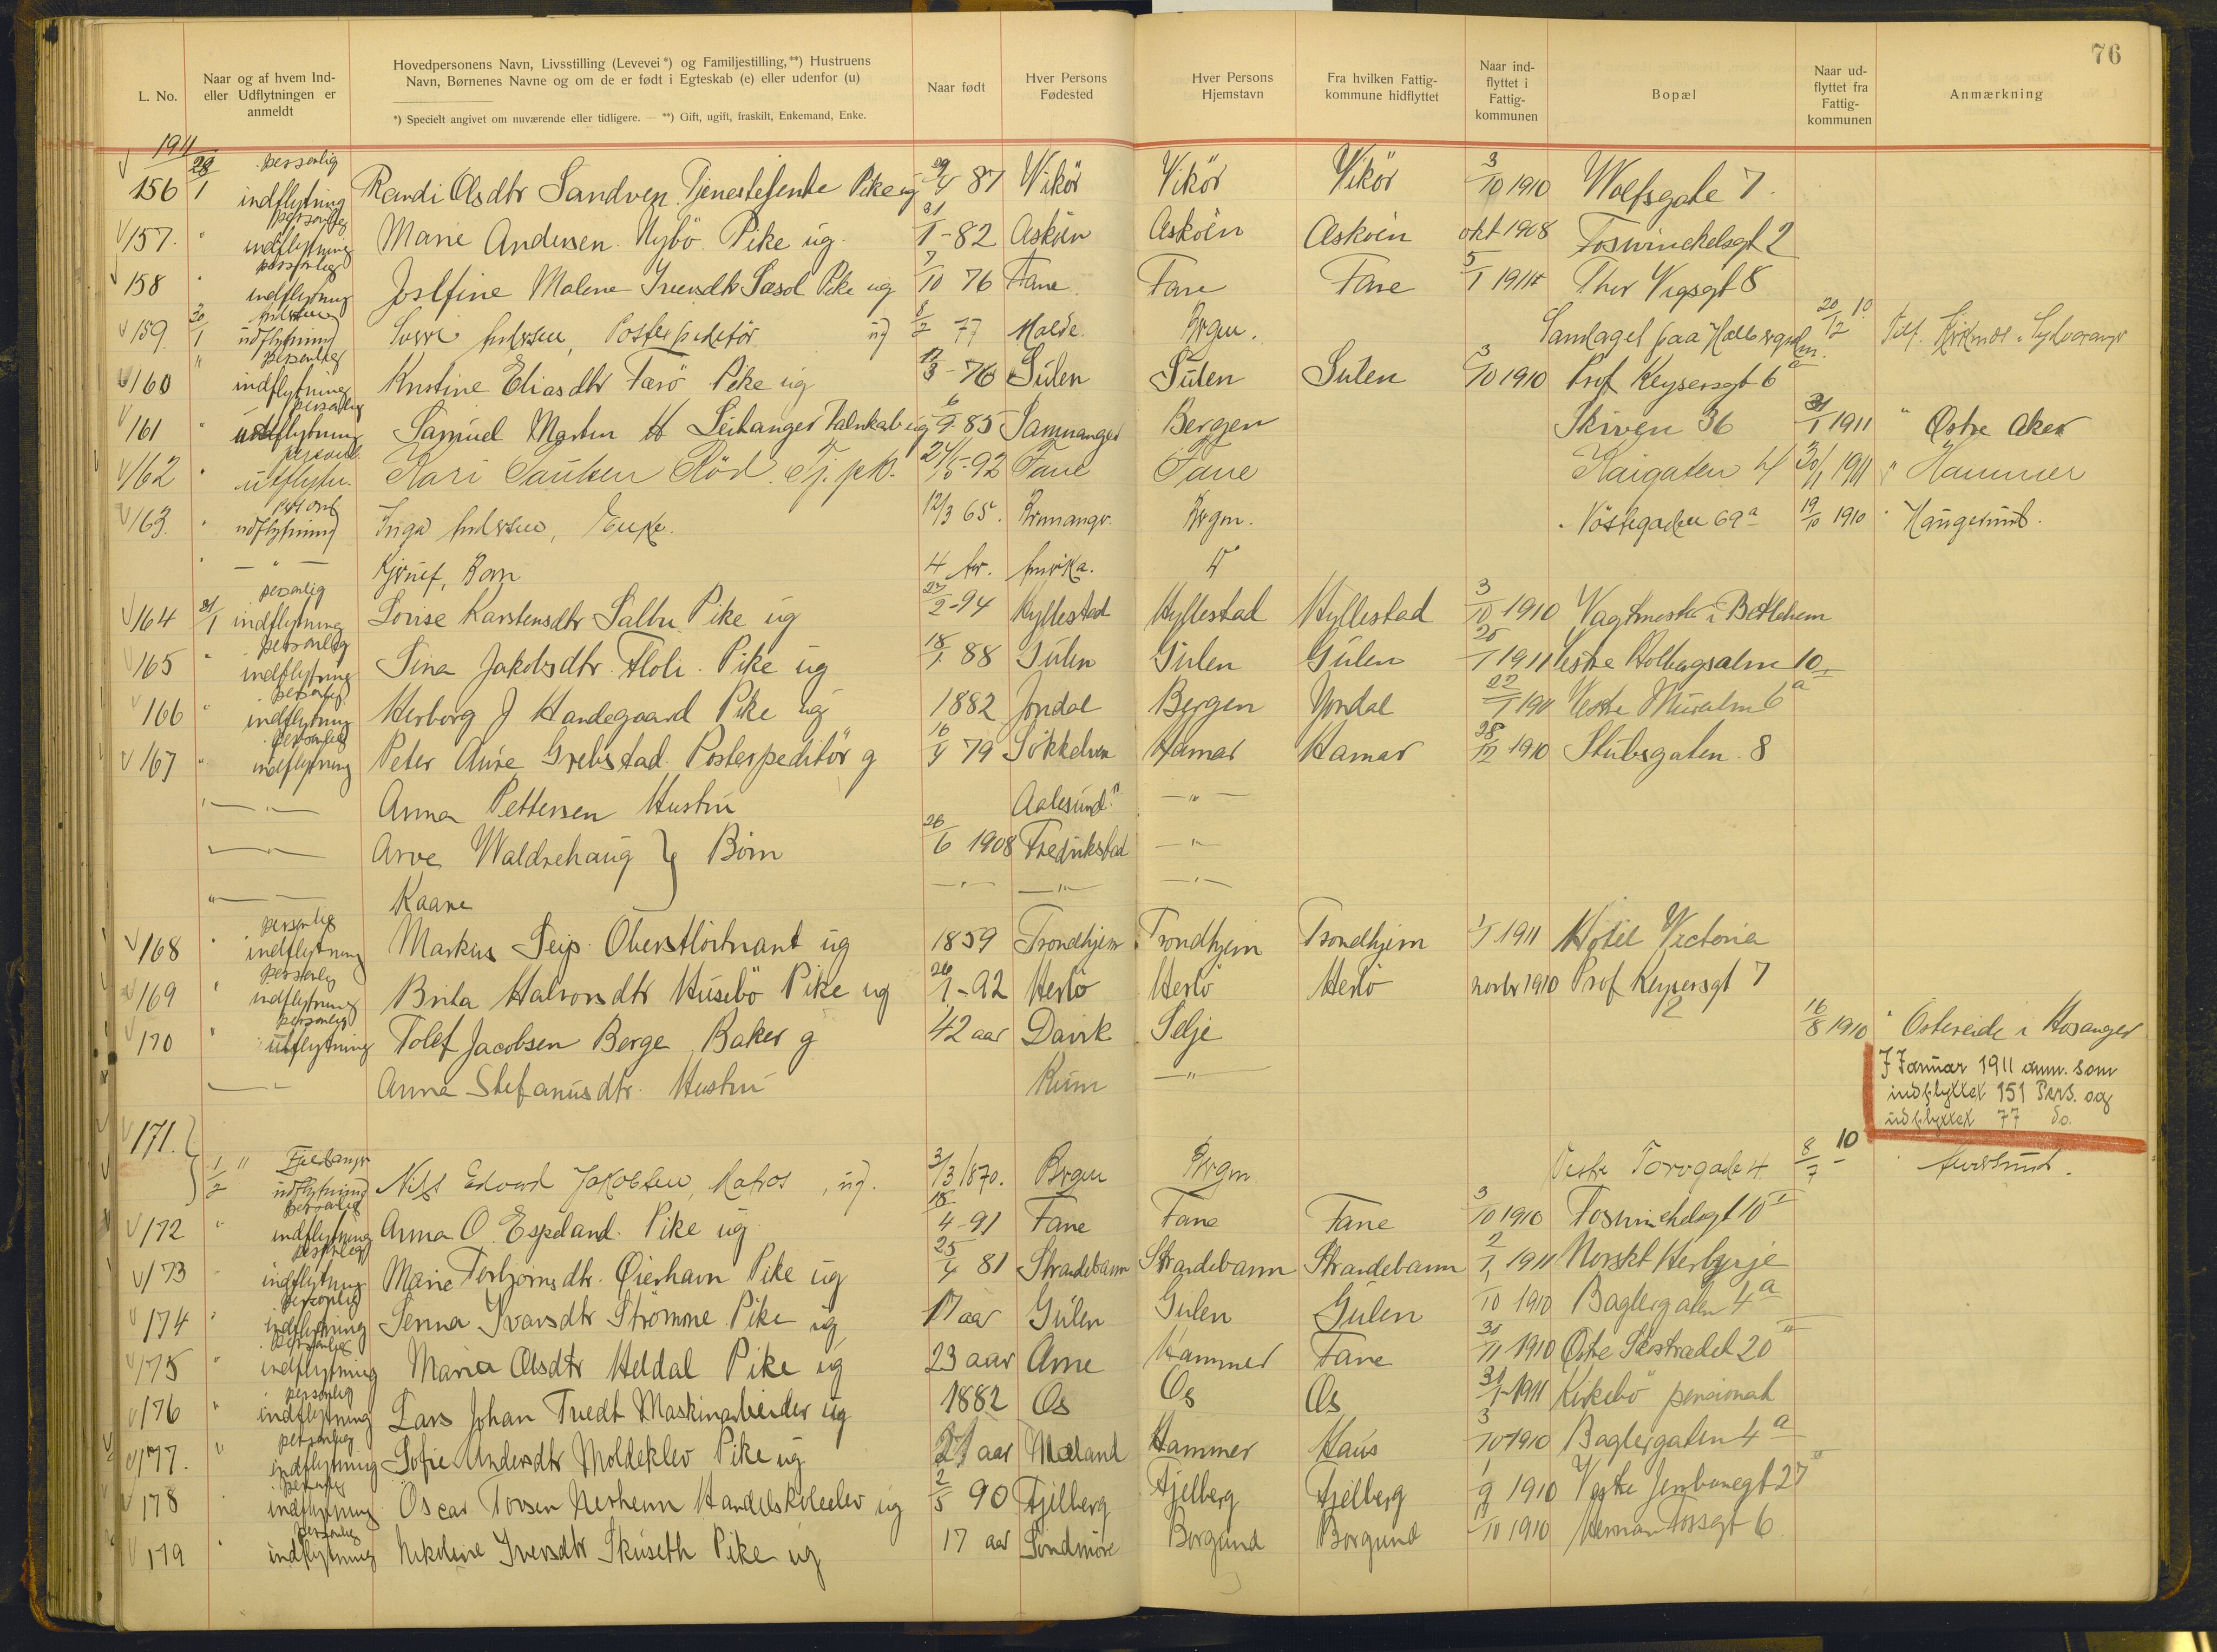 76
L. No.
Naar og af hvem Ind- eller Udflytningen er anmeldt
Hovedpersonens Navn, Livsstilling (Levevei*) og Familjestilling,**) Hustruens Navn, Børnenes Navne og om de er født i Egteskab (e) eller udenfor (u)
*) Specielt angivet om nuværende eller tidligere. — **) Gift, ugift, fraskilt, Enkemand, Enke.
Naar født
Hver Persons Fødested
Hver Persons Hjemstavn
Fra hvilken Fattig- kommune hidflyttet
Naar ind- flyttet i Fattig- kommunen
Bopæl
Naar ud- flyttet fra Fattig- kommunen
Anmærkning
1911
156 28/1 personlig indflytning Randi Olsdtr Sandven Tjenestejente Pike ug 29/4 87 Wikör Vikör Vikör 3/10 1910 Wolfsgate 7.
157. " personlig indflytning Marie Andersen Nybö Pike ug. 31/1-82 Asköen Asköen Asköen okt 1908 Foswinckelsgt 2
158 " personlig indflytning Josefine Malene Iversdtr Pike ug 7/10 76 Fane Fane Fane 5/1 1911 Thor 8
159. 30/1 udflytning Postexpeditör ug 8/2 77 Molde. Brgn. 20/12 10. Tilf. Sydvaranger
160 " personlig indflytning Kristine Eliasdtr Farö Pike ug 12/3-76 Sulen Sulen Sulen 3/10 1910 Prof Keysersgt 6a
161 " personlig utflytning Samuel Martin H Leihanger ug 6/9 85 Samnanger Bergen Skiven 36 31/1 1911 " Östre Aker
162 " personl. utflytn. Kari Paulsen Röd. Tj. pk. 24/5-92 Fane Fane Kaigaten 4 30/1 1911 " Hammer
163. " udflytning Inga Enke. 12/3 65. Brgn. Nöstegaden 69a 19/10 1910 " Haugesund.
" — " — Barn 4 Amrika. do
164 31/1 personlig indflytning Lovise Karstensdtr Saltu Pike ug 27/2-94 Hyllestad Hyllestad Hyllestad 3/10 1910 Vagtmester i Betlehem
165 " personlig indflytning Sina Jakobsdtr. Floli. Pike ug 18/1. 88 Gulen Gulen Gulen 25/1 1911 Vestre 10
166 " personlig indflytning Herborg J Handegaard Pike ug 1882 Jondal Bergen Jondal 22/1 1911 Vestre Muralm 6a
167 " personlig indflytning Peter Aure Grebstad Postexpeditör g 16/4 79 Sökkelven Hamar Hamar 28/12 1910 Stubsgaten 8
" — " — Anna Pettersen Hustru Aalesund — " —
" — " — Arve Waldrehaug } Börn 26/6 1908 Fredrikstad — " —
" — " — Kaare — " — — " — — " —
168 " personlig indflytning Markus Seip. Oberstlöitnant ug 1859 Trondhjem Trondhjem Trondhjem 1/1 1911 Hotel Victoria
169 " personlig indflytning Brita Halvorsdtr Husebö Pike ug 26/1-92 Herlö Herlö Herlö novbr 1910 Prof Keysersgt 7
170 " personlig utflytning Tolef Jacobsen Berge Baker g 42 aar Davik Selje 16/8 1910 " Ostereide i Hosanger
" — " — Anna Stefanusdtr. Hustru Kinn — " —
I Januar 1911 anm. som
indflyttet 151 Pers. og
udflyttet 77 do.
171. 1/2 " udflytning Nils Edvard Jakobsen, Matros, ug. 3/3 1870. Brgen Brgn Vestre Torvgade 4 8/7 - 10
172 " personlig indflytning Anna O. Espeland. Pike ug 18/4-91 Fane Fane Fane 3/10 1910 Foswinckelsgt 10 I
173 personlig indflytning Marie Torbjornsdtr. Öierhavn Pike ug 25/4 81 Strandebarm Strandebarm Strandebarm 2/1 1911 Norskt Herbyrje
174 " personlig indflytning Jenna Ivarsdtr Strömme Pike ug 17 aar Gulen Gulen Gulen 10 1910 Baglergaten 4a
175 " personlig indflytning Maria Olsdtr Heldal Pike ug 23 aar Arne Hammer Fane 30/11 1910 Östre 20
176 " personlig indflytning Lars Johan Tvedt Maskinarbeider ug 1882 Os Os Os 31/1-1911 Kirkebö pensionat
177. " personlig indflytning Sofie Andersdtr Moldeklev Pike ug 21 aar Mæland Hammer Haus 3/10 1910 Baglergaten 4a
178 personlig indflytning Oscar Torsen Nerheim Handelskoleelev ug 2/5 90 Fjelberg Fjelberg Fjelberg 1/9 1910 Vestre Jernbanegt 27
179 personlig indflytning Nikoline Iversdtr Skuseth Pike ug 17 aar Söndmöre Borgund Borgund 10 1910 Herman Fossgt 6